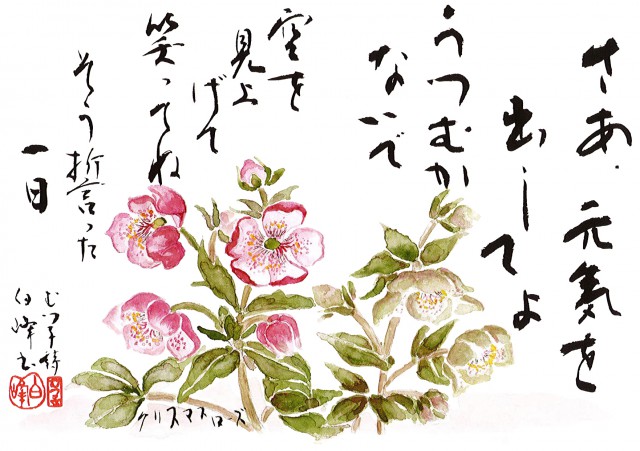 さあ、元気を
出してよ
うつむか
ないで
空を
見上
げて
笑ってね
そう誓った
一日
むつ子詩
白峰書
白峰
クリスマスローズ